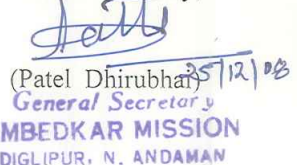 (Patel Dhirubhai) 25/12/08
General Secretary
MBEDKAR MISSION
DIGLIPUR, N. ANDAMAN